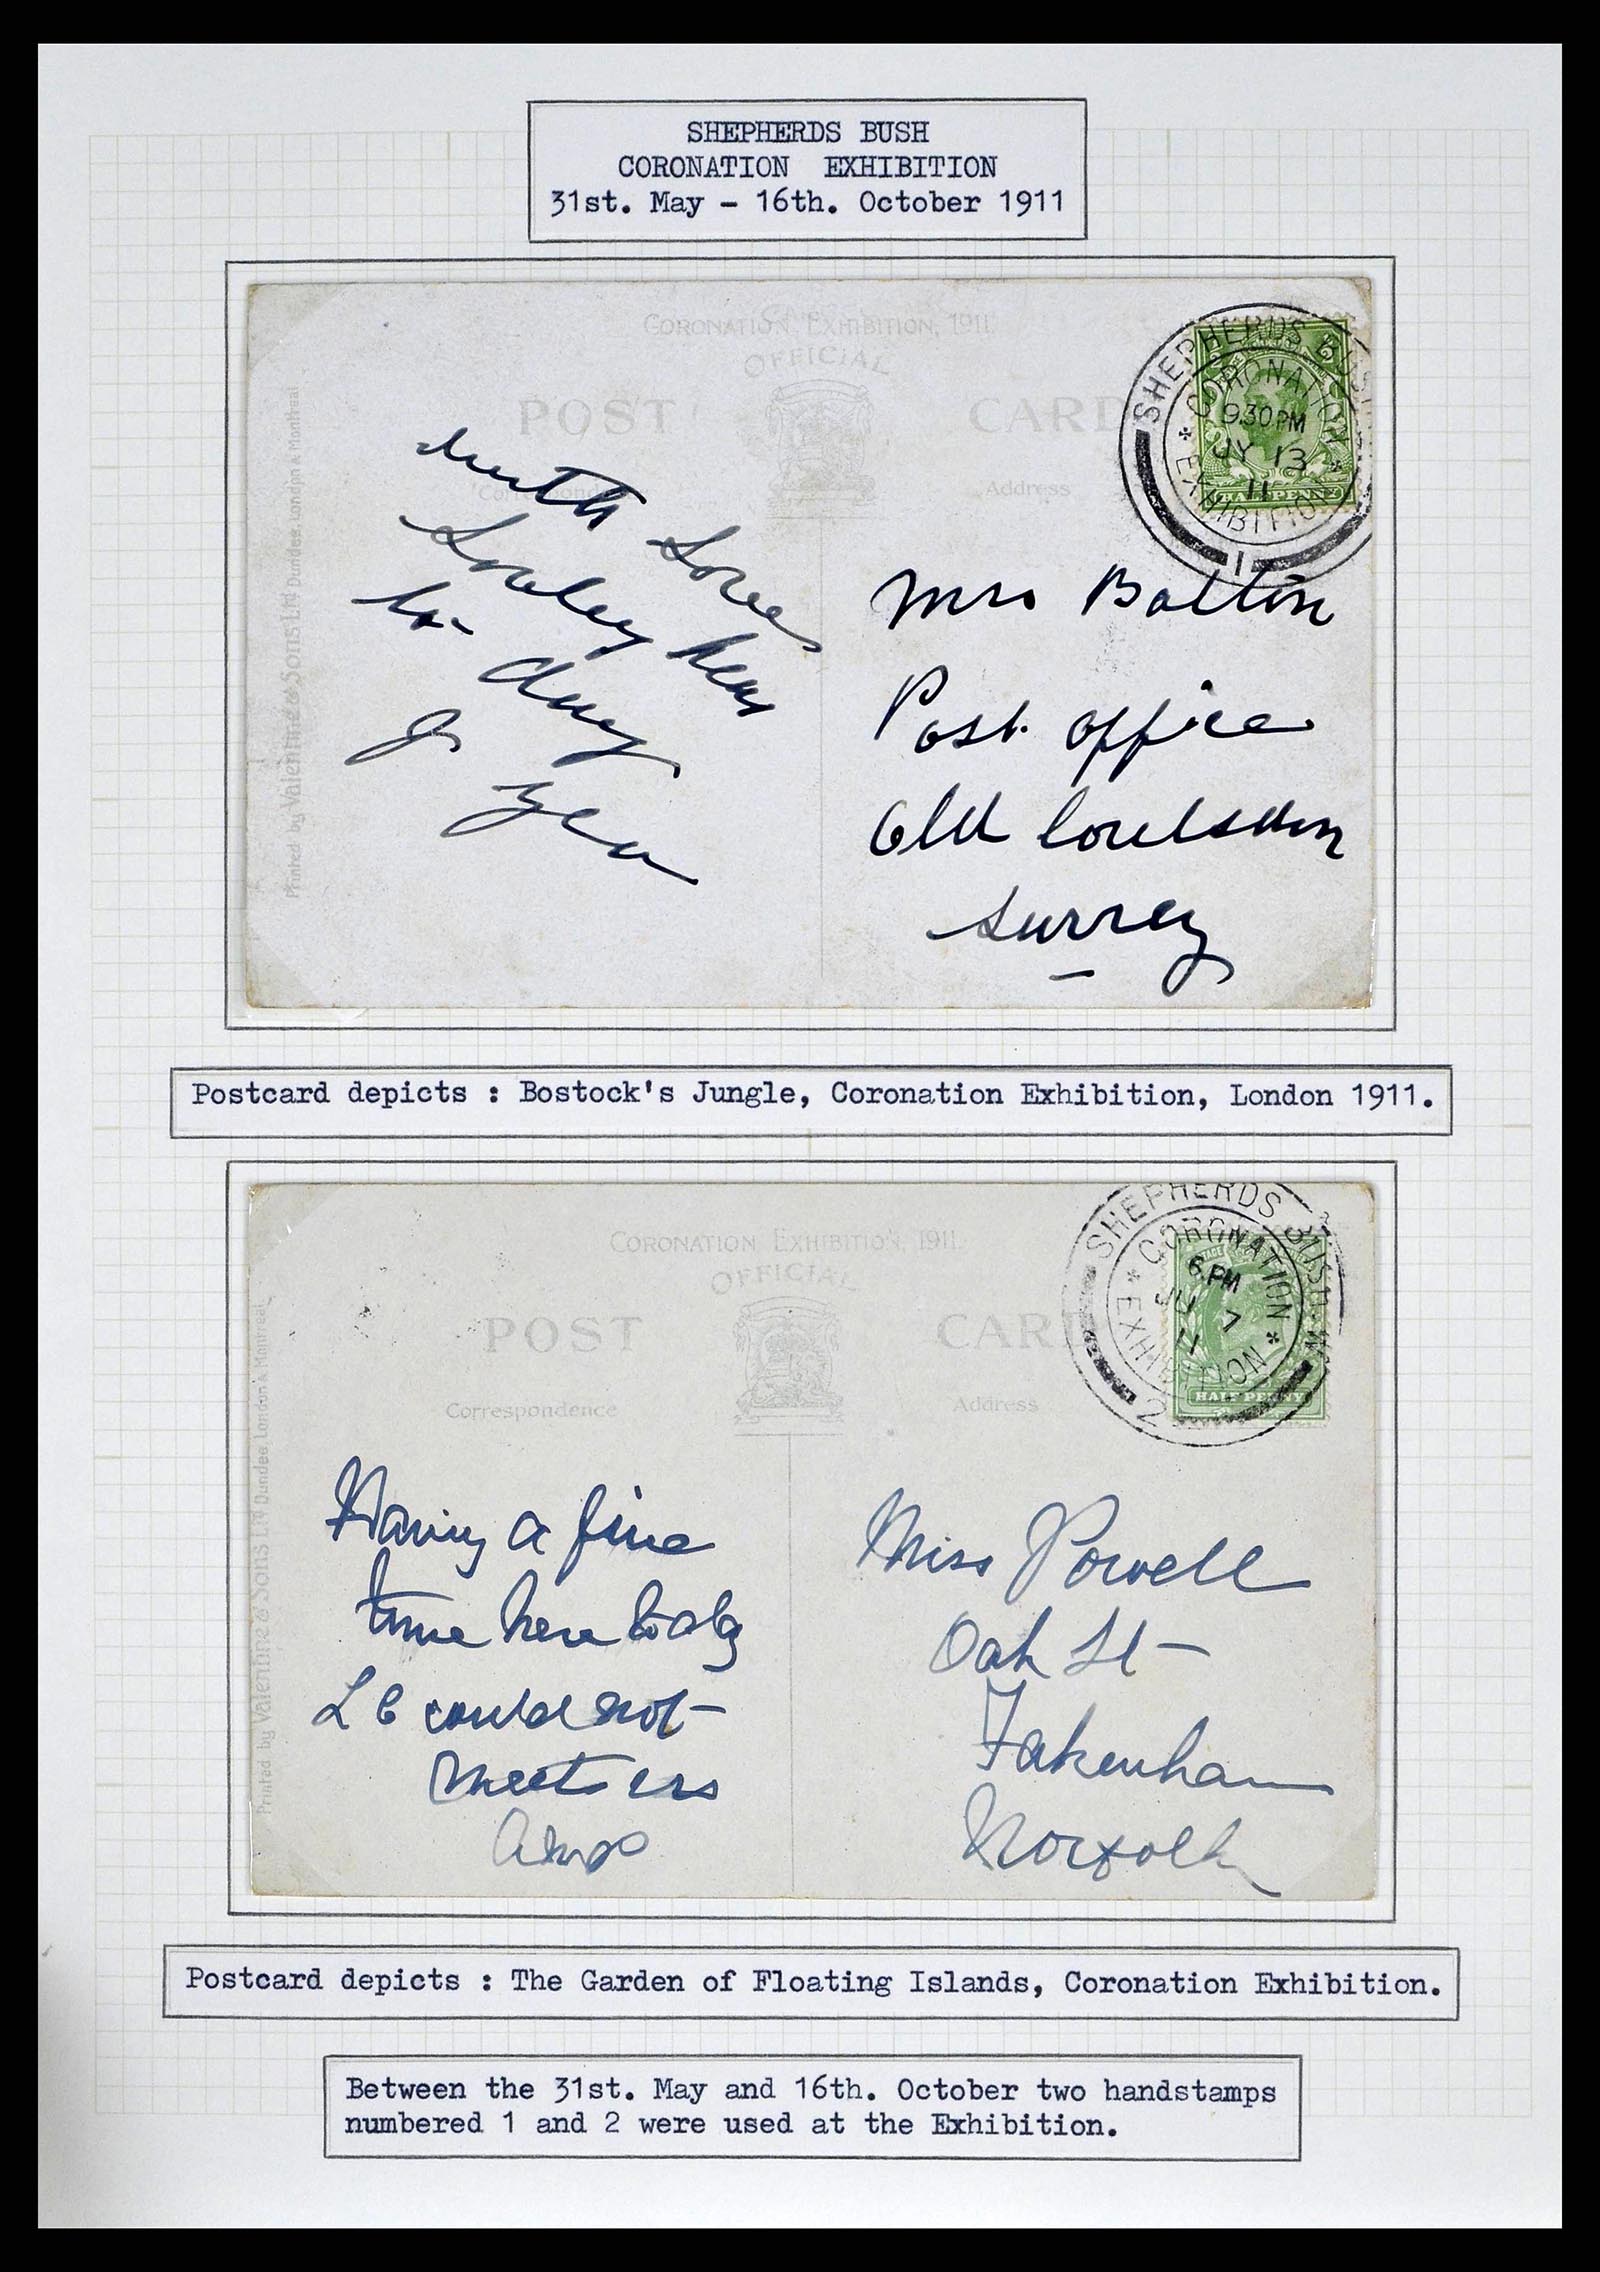 SHEPHERDS BUSH
CORONATION EXHIBITION
31st. May - 16th. October 1911
CORONATION EXHIBITION, 1911.
OFFICIAL
POST CARD
Correspondence
Address
Printed by Valentine & Sons Ltd Dundee, London & Montreal
SHEPHERDS BUSH
CORONATION
9.30 PM
JY 13
11
EXHIBITION
1
HALFPENNY
with Love
Lovely
to-day
Mrs Bolton
Post office
Old Coulsdon
Surrey
Postcard depicts : Bostock's Jungle, Coronation Exhibition, London 1911.
CORONATION EXHIBITION, 1911.
OFFICIAL
POST CARD
Correspondence
Address
Printed by Valentine & Sons Ltd Dundee, London & Montreal
SHEPHERDS BUSH. W
CORONATION
6. PM
7
11
EXHIBITION
2
HALFPENNY
Having a fine
time here today
L C could not
meet us
Miss Powell
Oak St
Fakenham
Norfolk
Postcard depicts : The Garden of Floating Islands, Coronation Exhibition.
Between the 31st. May and 16th. October two handstamps
numbered 1 and 2 were used at the Exhibition.